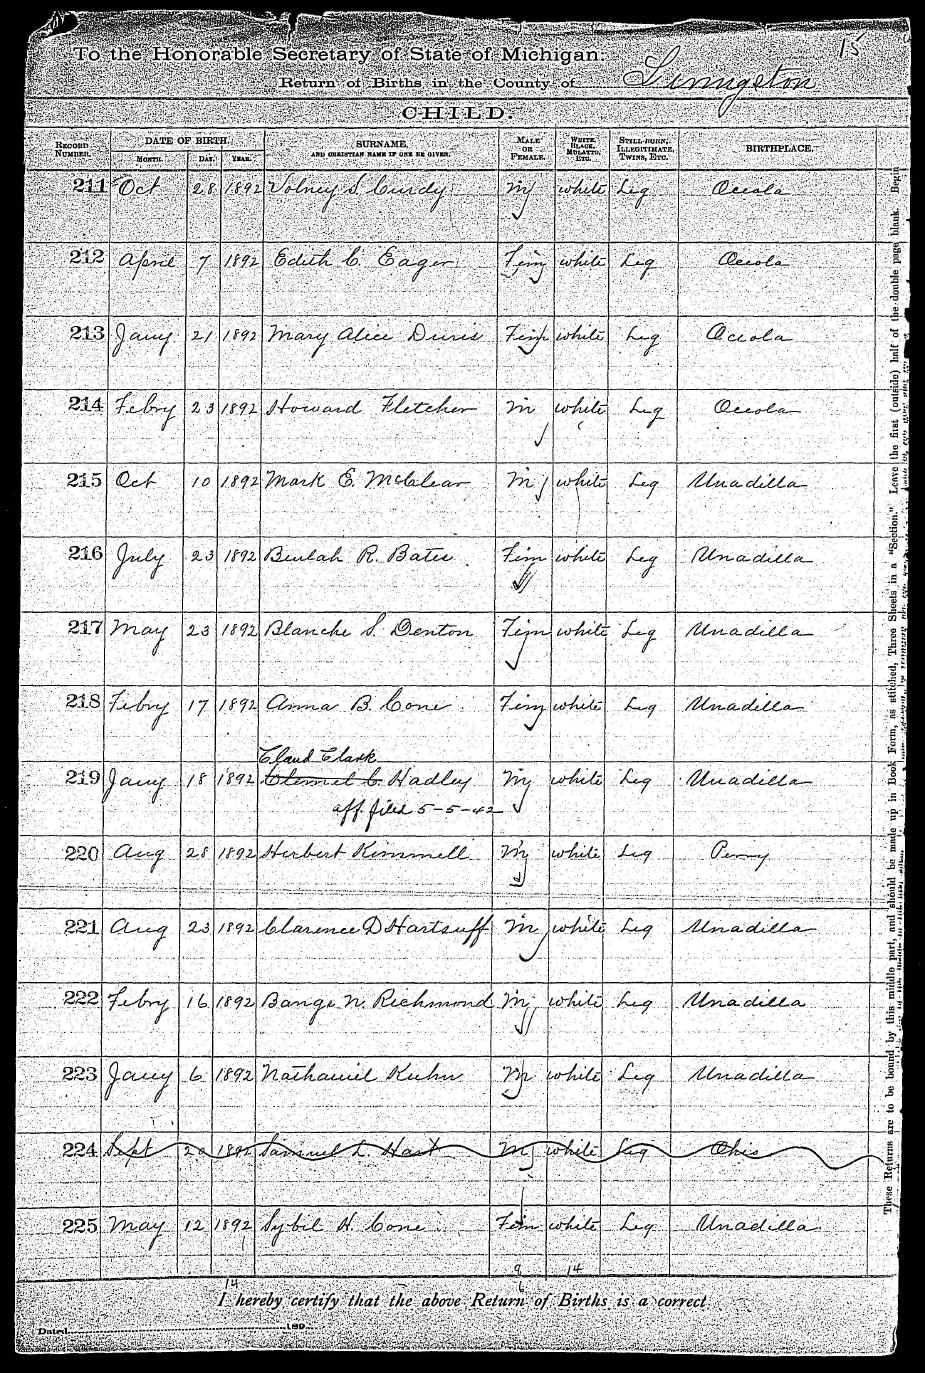 15
To the Honorable Secretary of State of Michigan:
Return of Births in the County of Livingston
CHILD.
RECORD NUMBER. DATE OF BIRTH. MONTH. DAY. YEAR. SURNAME, AND CHRISTIAN NAME IF ONE BE GIVEN. MALE OR FEMALE. WHITE, BLACK, MULATTO, ETC. STILL-BORN, ILLEGITIMATE, TWINS, ETC. BIRTHPLACE.
211 Oct 28 1892 Volney S. Curdy M white Leg Oceola
212 April 7 1892 Edith C. Eager Fem white Leg Oceola
213 Jany 21 1892 Mary Alice Fem white Leg Oceola
214 Febry 23 1892 Howard Fletcher M white Leg Oceola
215 Oct 10 1892 Mark E. McClear M white Leg Unadilla
216 July 23 1892 Beulah R. Bates Fem white Leg Unadilla
217 May 23 1892 Blanche S. Denton Fem white Leg Unadilla
218 Febry 17 1892 Anna B. Cone Fem white Leg Unadilla
Claud Clark
219 Jany 18 1892 Clemet C. Hadley M white Leg Unadilla
aff. filed 5-5-42
220 Aug 28 1892 Herbert Kimmell M white Leg Perry
221 Aug 23 1892 Clarence D Hartsuff M white Leg Unadilla
222 Febry 16 1892 Bange N. Richmond M white Leg Unadilla
223 Jany 6 1892 Nathaniel Kuhn M white Leg Unadilla
224 Sept 20 1892 Samuel L. Hart M white Leg Ohio
225 May 12 1892 Sybil H. Cone Fem white Leg Unadilla
9 14
14 6
I hereby certify that the above Return of Births is a correct
Dated 189
These Returns are to be bound by this middle part, and should be made up in Book Form, as stitched, Three Sheets in a "Section." Leave the first (outside) half of the double page blank. Begin